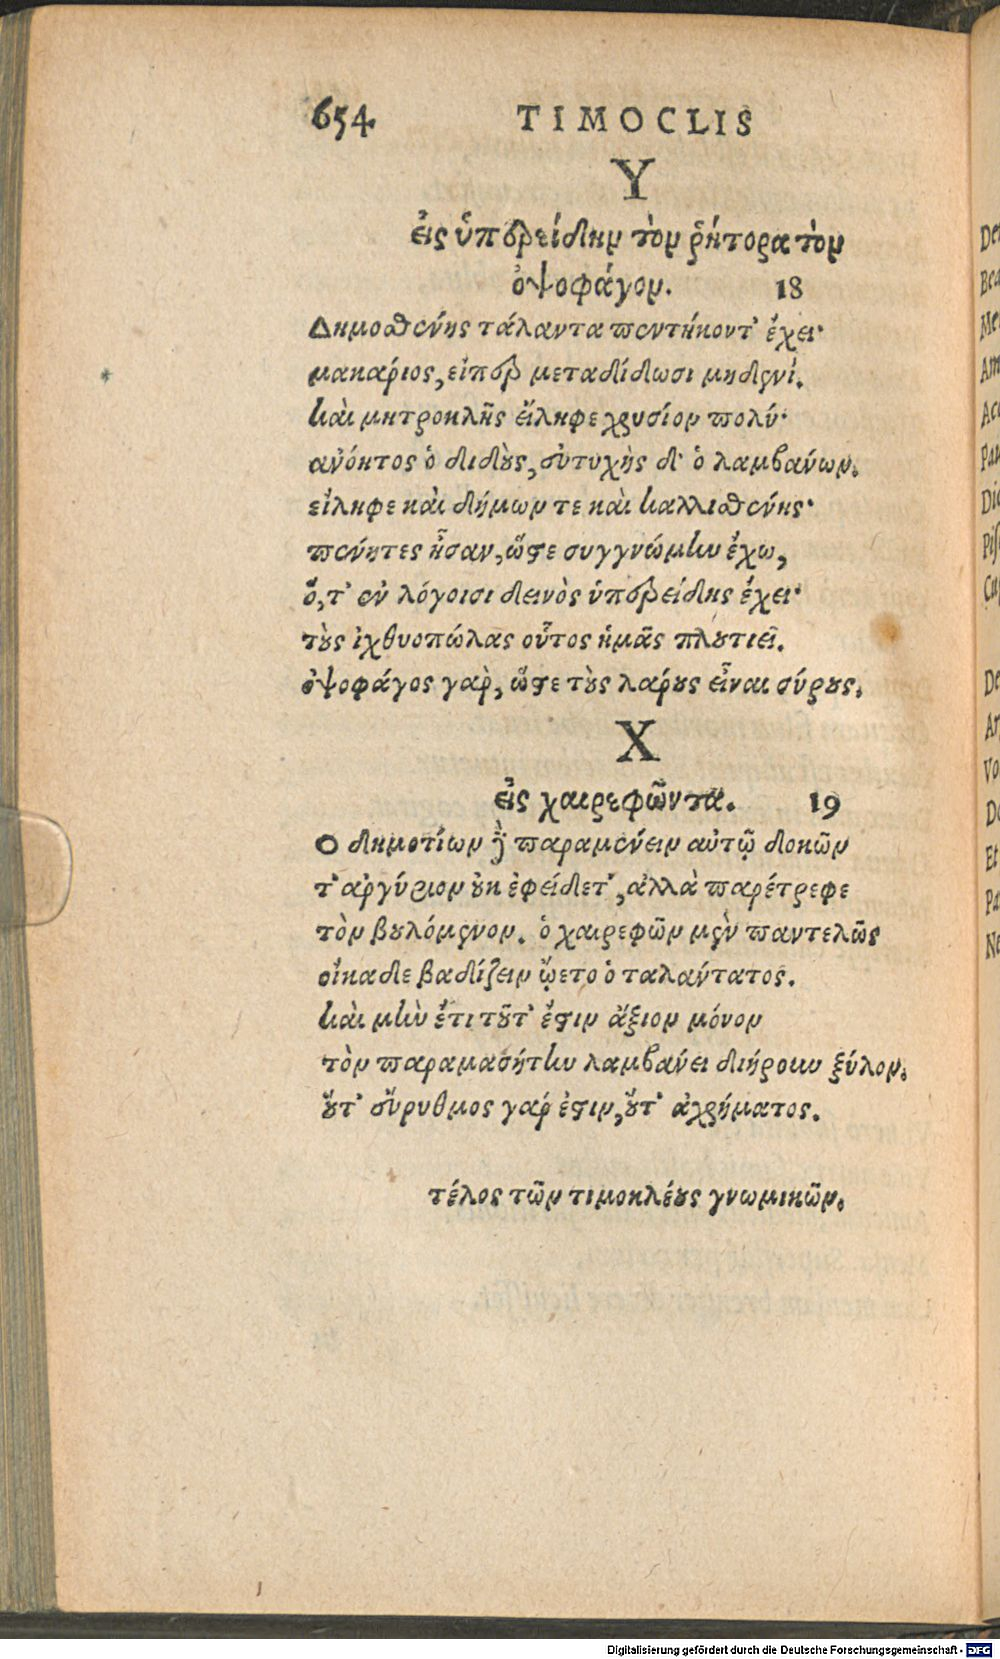 654 TIMOCLIS
Υ
εἰς ὑπερείδην τὸν ῥήτορα τὸν
ὀψοφάγον. 18
Δημοσθένης τάλαντα πεντήκοντ' ἔχει·
μακάριος, εἴπερ μεταδίδωσι μηδενί.
καὶ μητροκλῆς εἴληφε χρυσίον πολύ·
ἀνόητος ὁ διδοὺς, εὐτυχὴς δ' ὁ λαμβάνων.
εἴληφε καὶ δήμων τε καὶ καλλισθένης·
πένητες ἦσαν, ὥστε συγγνώμην ἔχω,
ὅ, τ' ἐν λόγοισι δεινὸς ὑπερείδης ἔχει·
τοὺς ἰχθυοπώλας οὗτος ἡμᾶς πλουτιεῖ.
ὀψοφάγος γὰρ, ὥστε τοὺς λάρους εἶναι σύρους.
Χ
εἰς χαιρεφῶντα. 19
Ο δημοτίων παραμένειν αὐτῷ δοκῶν
τ' ἀργύριον οὐκ ἐφείδετ', ἀλλὰ παρέτρεφε
τὸν βουλόμενον. ὁ χαιρεφῶν μὲν παντελῶς
οἴκαδε βαδίζειν ᾤετο ὁ ταλάντατος.
καὶ μὴν ἔτι τοῦτ' ἔστιν ἄξιον μόνον
τὸν παραμασήτην λαμβάνει διήρουν ξύλον.
οὔτ' εὔρυθμος γάρ ἐστιν, οὔτ' ἀχρήματος.
τέλος τῶν τιμοκλέους γνωμικῶν.
Digitalisierung gefördert durch die Deutsche Forschungsgemeinschaft - DFG